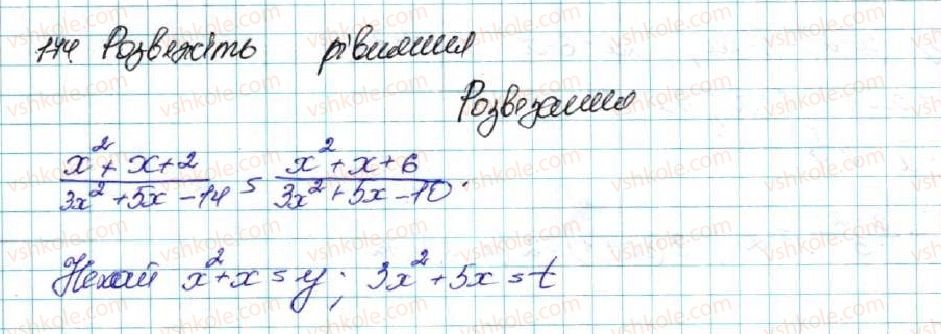 174. Розвяжіть рівняння
Розвязання
x²+x+2 / 3x²+5x-14 = x²+x+6 / 3x²+5x-10.
Нехай x²+x=y; 3x²+5x=t